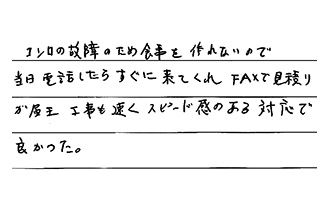 コンロの故障のため食事を作れないので
当日電話したらすぐに来てくれFAXで見積り
が届き工事も速くスピード感のある対応で
良かった。